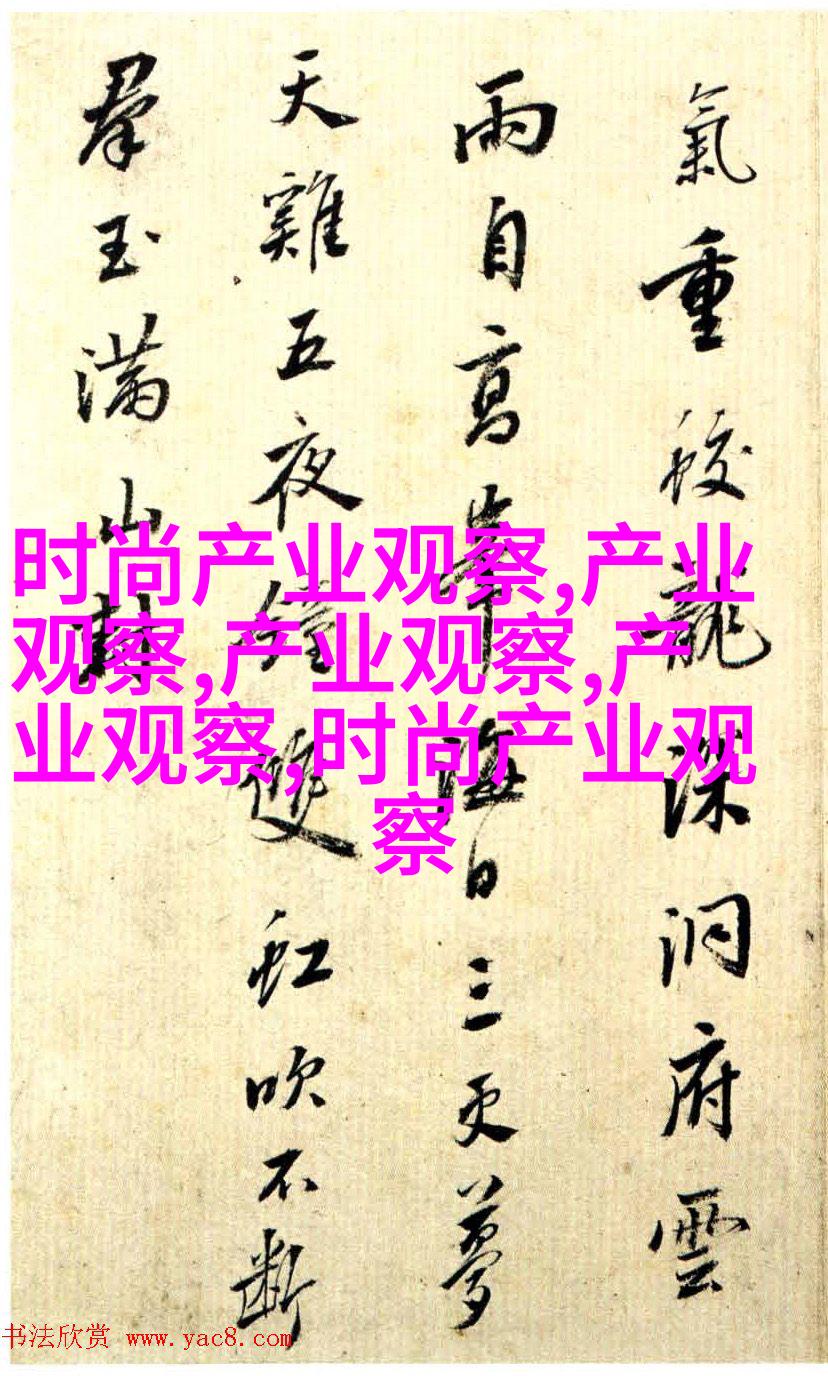 氣重蛟龍深洞府雲
雨自高峯海日三更夢
天雞五夜鐘雙虹吹不斷
羣玉滿山林
时尚产业观察,产业
观察,产业观察,产
业观察,时尚产业观
察
书法欣赏 www.yac8.com